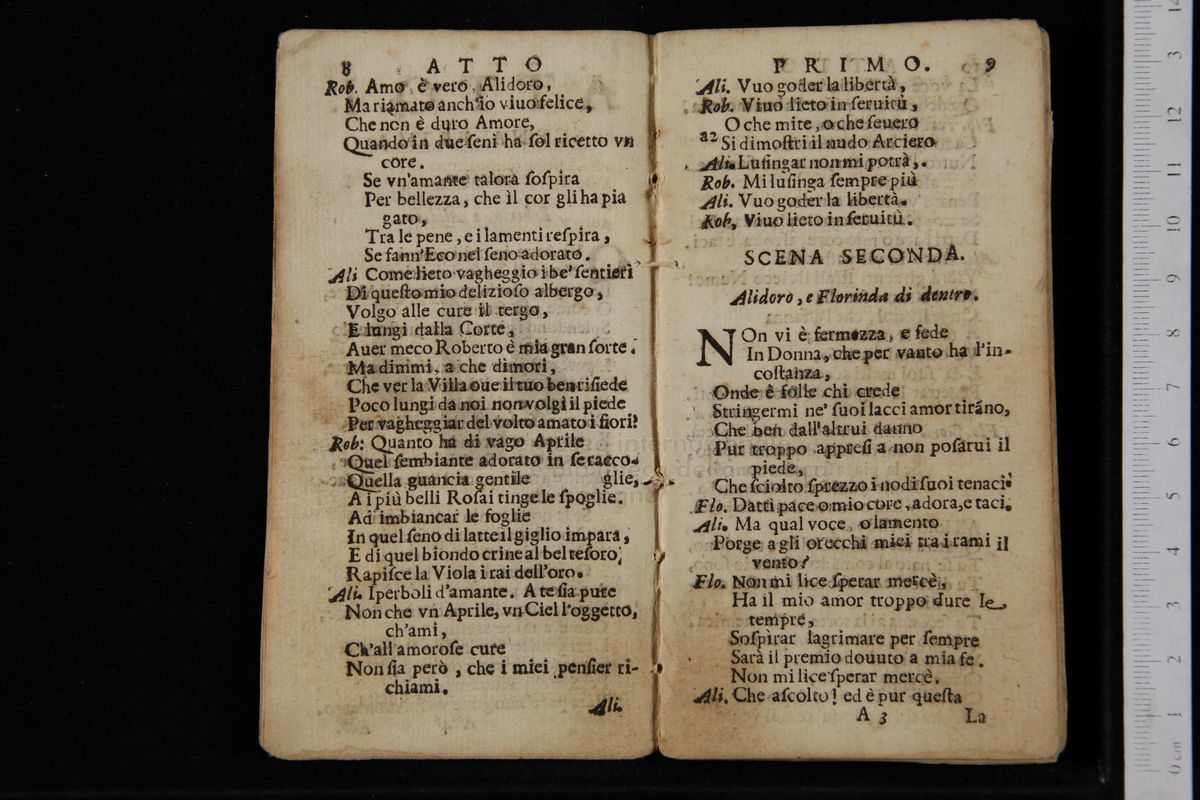 8 ATTO
Rob. Amo, è vero, Alidoro,
Ma riamato anch'io viuo felice,
Che non è duro Amore,
Quando in due seni ha sol ricetto vn
core.
Se vn'amante talora sospira
Per bellezza, che il cor gli ha pia
gato,
Tra le pene, e i lamenti respira,
Se fann'Eco nel seno adorato.
Ali Come lieto vagheggio i be' sentieri
Di questo mio delizioso albergo,
Volgo alle cure il tergo,
E lungi dalla Corte,
Auer meco Roberto è mia gran sorte.
Ma dimmi, a che dimori,
Che ver la Villa oue il tuo ben risiede
Poco lungi da noi non volgi il piede
Per vagheggiar del volto amato i fiori?
Rob: Quanto ha di vago Aprile
Quel sembiante adorato in se racco-
Quella guancia gentile glie,
A i più belli Rosai tinge le spoglie.
Ad imbiancar le foglie
In quel seno di latte il giglio impara,
E di quel biondo crine al bel tesoro,
Rapisce la Viola i rai dell'oro.
Ali. Iperboli d'amante. A te sia pure
Non che vn Aprile, vn Ciel l'oggetto,
ch'ami,
Ch'all amorose cure
Non sia però, che i miei pensier ri-
chiami.
Ali.
PRIMO. 9
Ali. Vuo goder la libertà,
Rob. Viuo lieto in seruitù,
O che mite, o che seuero
a2 Si dimostri il nudo Arciero
Ali. Lusingar non mi potrà,
Rob. Mi lusinga sempre più
Ali. Vuo goder la libertà.
Rob, Viuo lieto in seruitù.
SCENA SECONDA.
Alidoro, e Florinda di dentro.
NOn vi è fermezza, e fede
In Donna, che per vanto ha l'in-
costanza,
Onde è folle chi crede
Stringermi ne' suoi lacci amor tiranno,
Che ben dall'altrui danno
Pur troppo appresi a non posarui il
piede,
Che sciolto sprezzo i nodi suoi tenaci.
Flo. Datti pace o mio core, adora, e taci.
Ali. Ma qual voce, o lamento
Porge a gli orecchi miei tra i rami il
vento?
Flo. Non mi lice sperar mercè,
Ha il mio amor troppo dure le
tempre,
Sospirar lagrimare per sempre
Sarà il premio douuto a mia fe.
Non mi lice sperar mercè.
Ali. Che ascolto! ed è pur questa
A 3 La